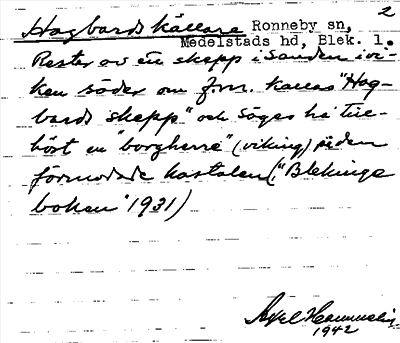 2
Hagbards källare Ronneby sn,
Medelstads hd, Blek. l.
Rester av en skepp i sanden i vi-
ken söder om f.m. kallas "Hag-
bards skepp" och säges ha till-
hört en "borgherre" (viking) på den
förmodade kastalen ("Blekinge
boken" 1931)
Axel
1942